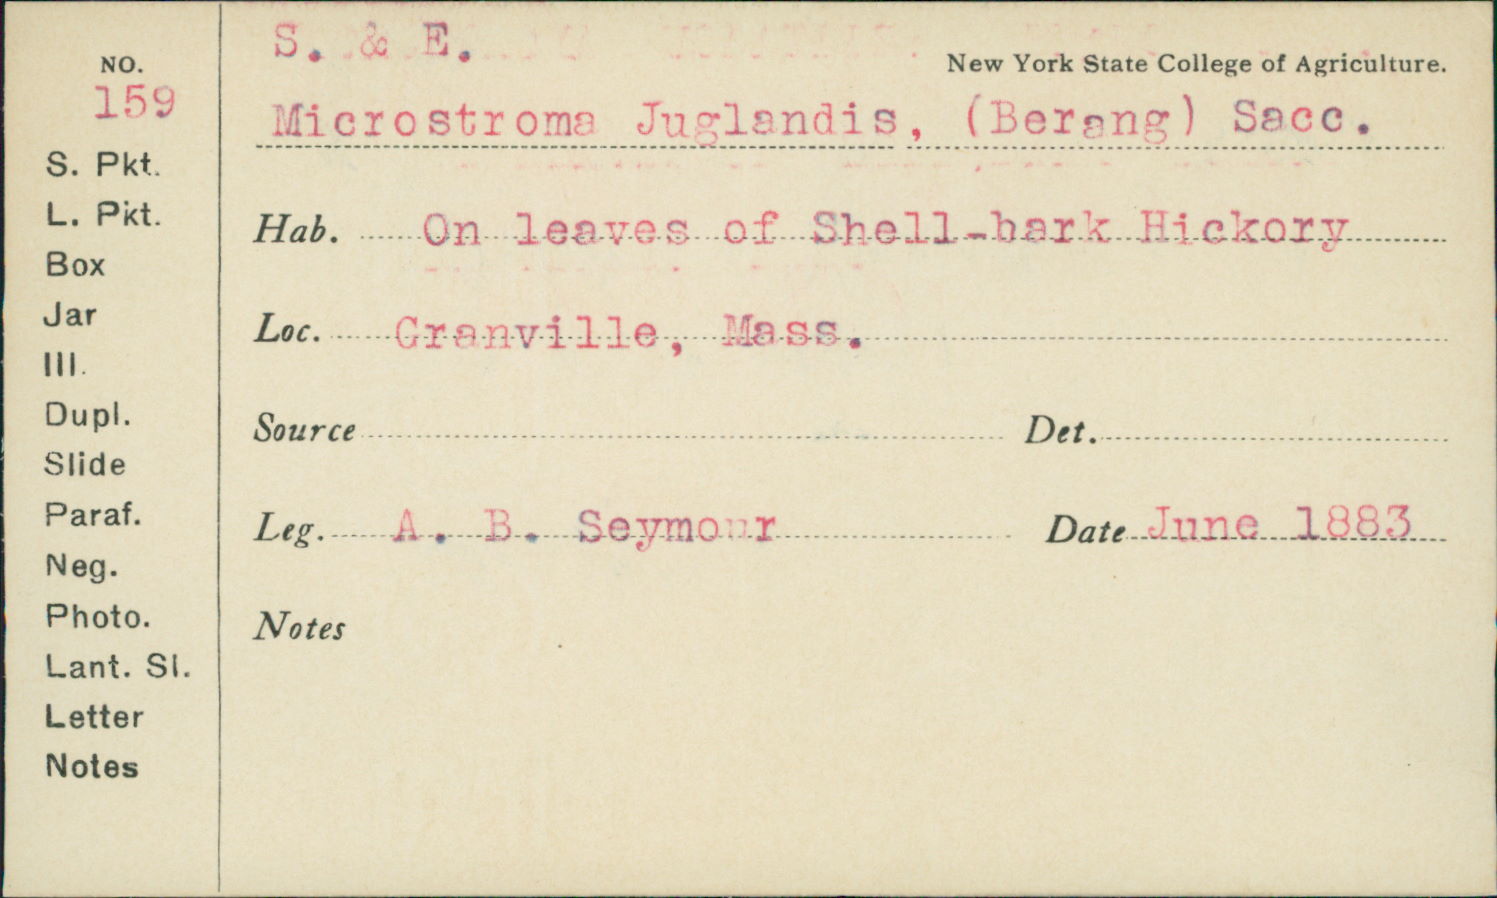 S. & E.
NO.
New York State College of Agriculture.
159
Microstroma Juglandis, (Berang) Sacc.
S. Pkt.
L. Pkt.
Hab. On leaves of Shell-bark Hickory
Box
Jar
Loc. Granville, Mass.
Ill.
Dupl.
Source Det.
Slide
Paraf.
Leg. A. B. Seymour Date June 1883
Neg.
Photo.
Notes
Lant. Sl.
Letter
Notes